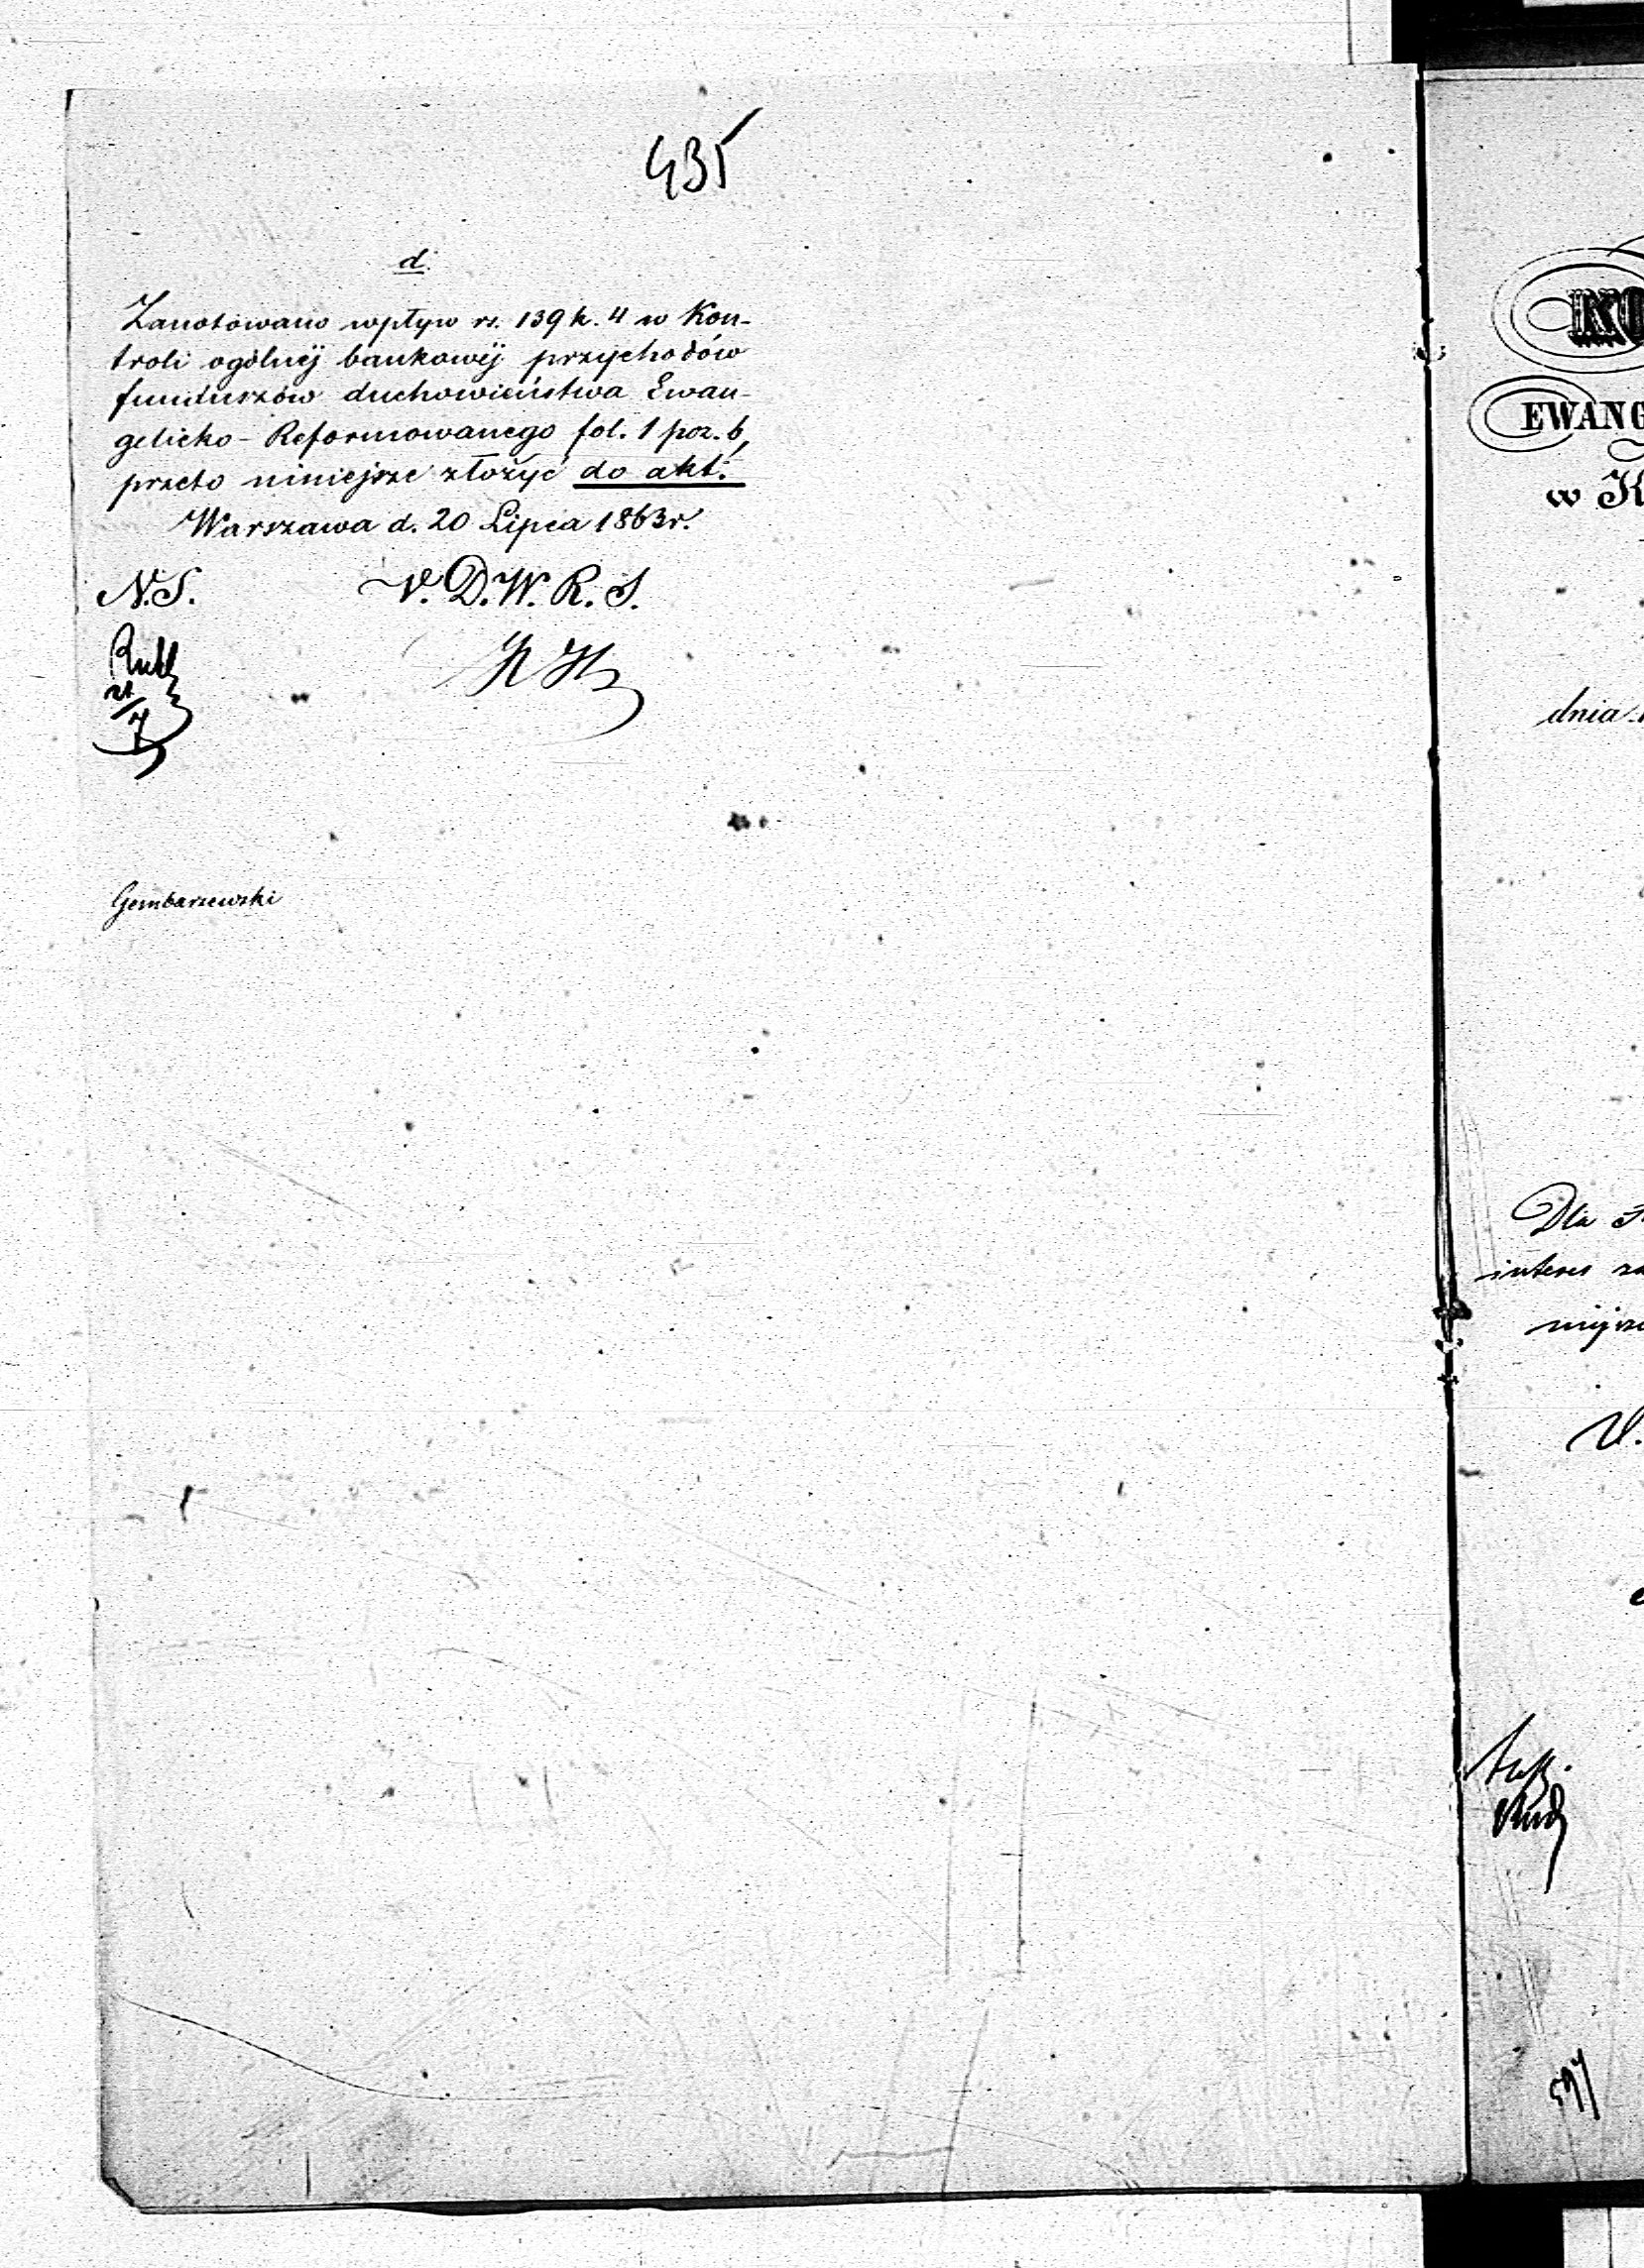 435
d.
Zanotowano wpływ rs. 139 k. 4 w Kon-
troli ogólnéj bankowéj przychodów
funduszów duchowieństwa Ewan-
gelicko-Reformowanego fol. 1 poz. 6,
przeto niniejsze złożyć do akt.
Warszawa d. 20 Lipca 1863 r.
N.S. V. D. W. R. S.
21/7
Gembarzewski
KO
EWANG
w K
dnia
Dla
interes
V.